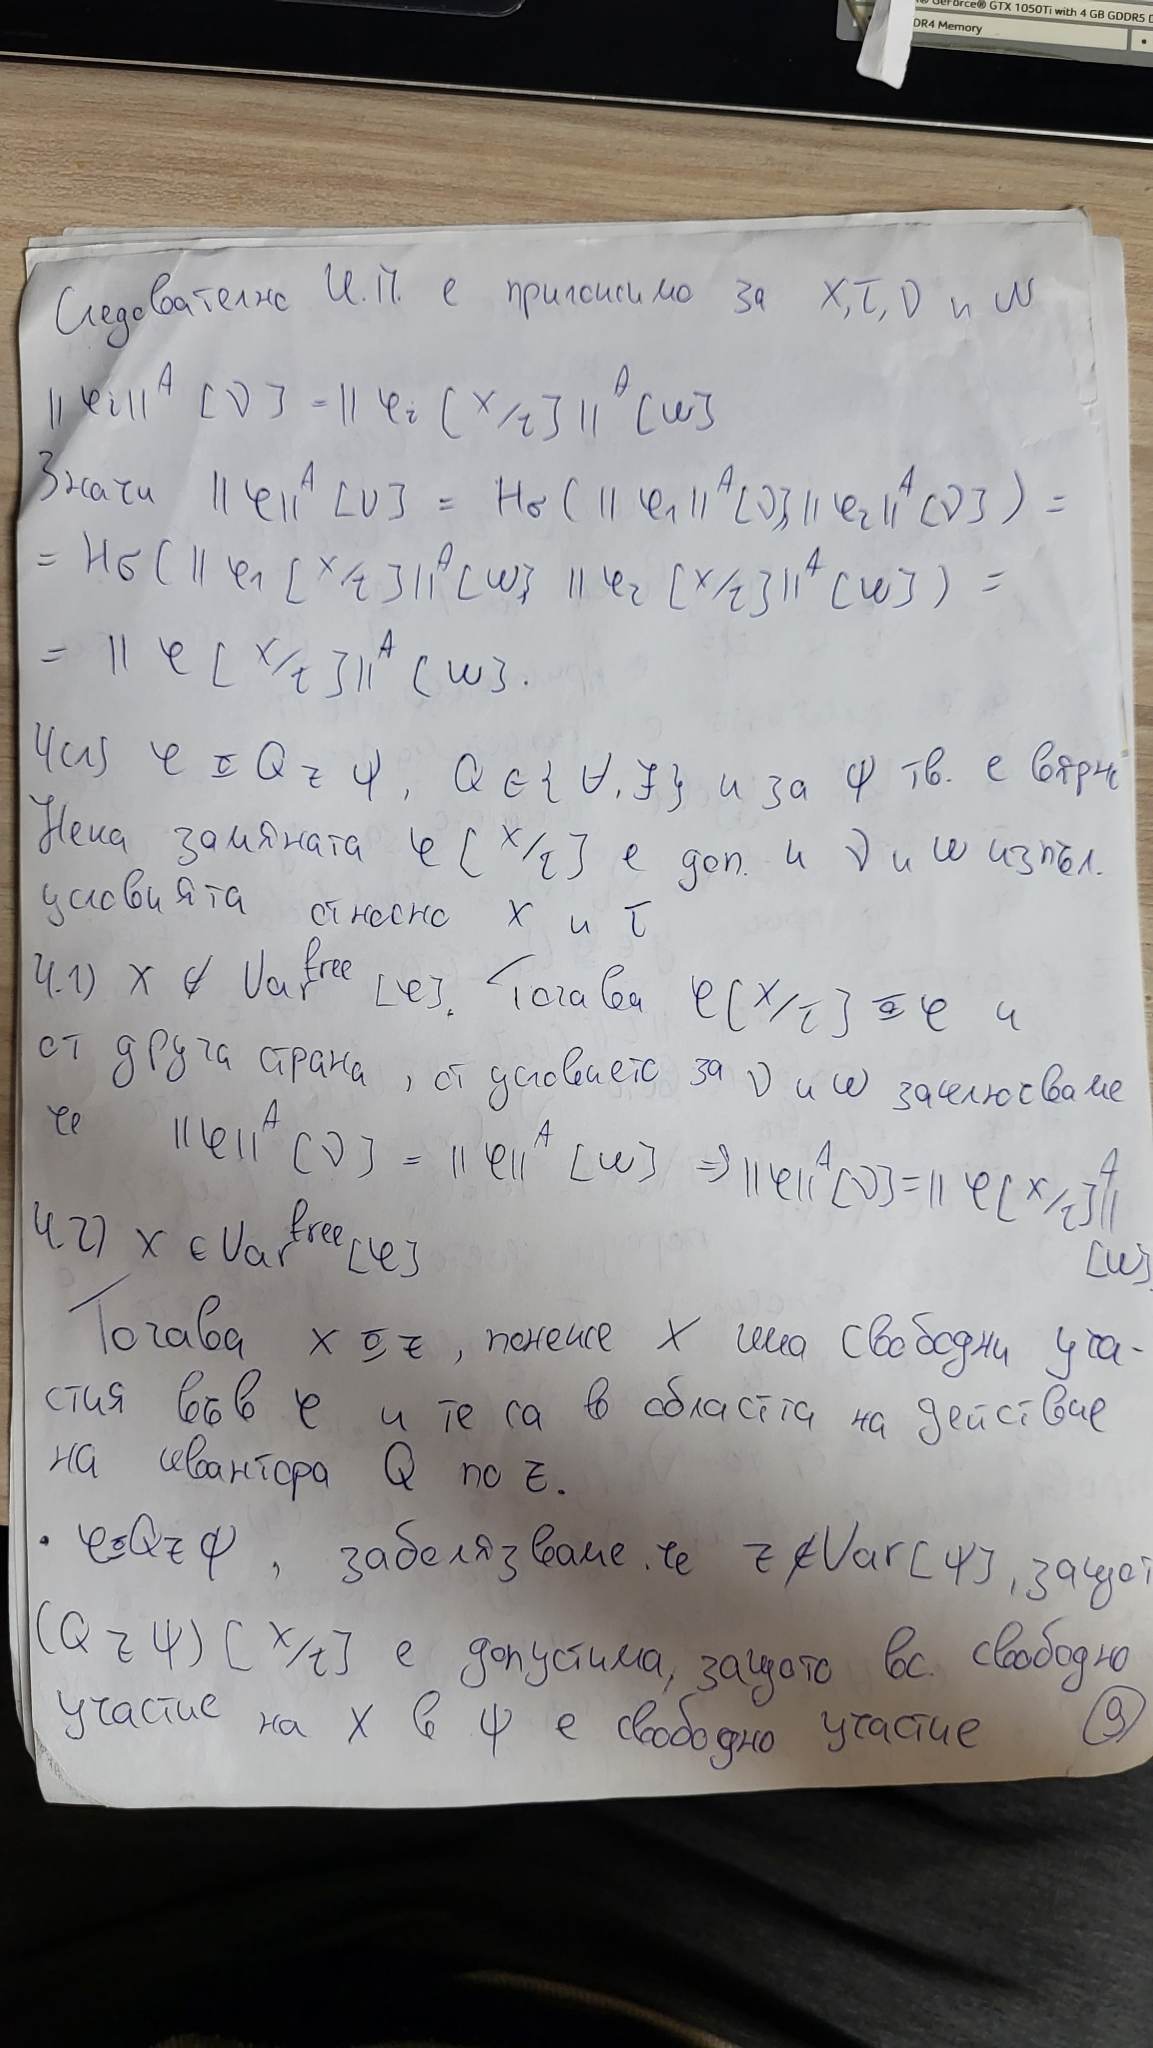 GeForce® GTX 1050Ti with 4 GB GDDR5
DR4 Memory
Следователно И.П. е приложимо за x, τ, ν и w
||φi||^A [ν] = ||φi [x/τ]||^A [w]
Значи ||φ||^A [ν] = Hσ(||φ1||^A[ν], ||φ2||^A[ν]) =
= Hσ(||φ1 [x/τ]||^A[w], ||φ2 [x/τ]||^A[w]) =
= ||φ[x/τ]||^A [w].
4сл) φ ≖ Qzψ, Q ∈ {∀, ∃} и за ψ тв. е вярно
Нека замяната φ[x/τ] е доп. и ν и w изпъл.
условията относно x и τ
4.1) x ∉ Var^free [φ]. Тогава φ[x/τ] ≖ φ и
от друга страна, от условието за ν и w заключваме
че ||φ||^A [ν] = ||φ||^A [w] ⇒ ||φ||^A[ν] = ||φ[x/τ]||^A
[w].
4.2) x ∈ Var^free [φ]
Тогава x ≖ z, понеже x има свободни уча-
стия във φ и те са в областта на действие
на квантора Q по z.
• φ ≖ Qzψ, забелязваме че z ∉ Var[ψ], защот
(Qzψ)[x/τ] е допустима, защото вс. свободно
участие на x в ψ е свободно участие 9